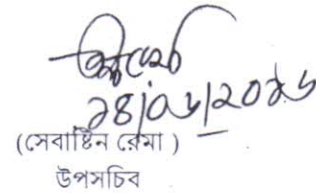 ২৪/০৬/২০১৬
(সেবাষ্টিন রেমা )
উপসচিব